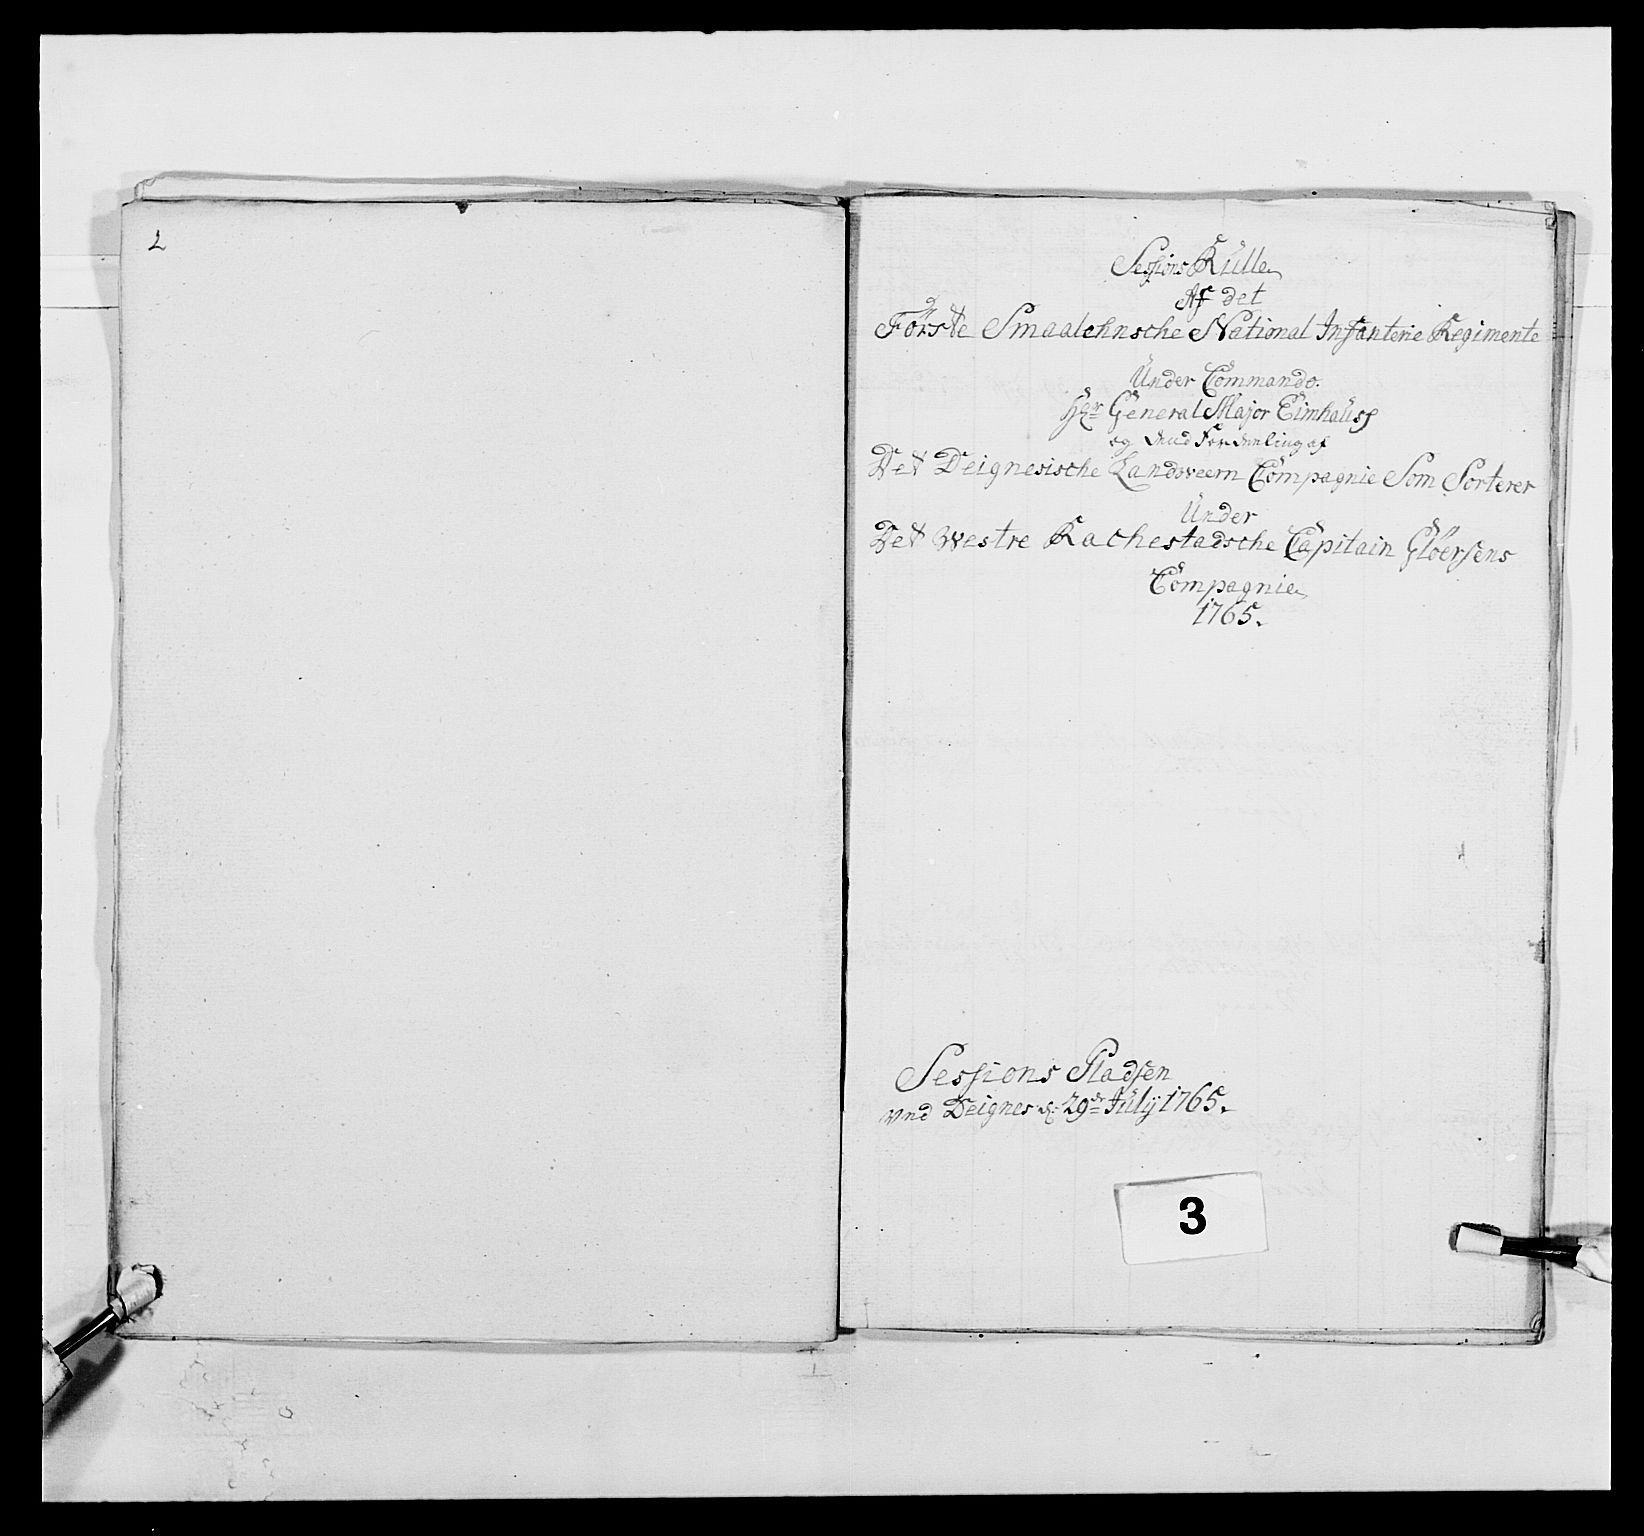 2
Sessions Rulle
Af det
Förste Smaalehnsche National Infanterie Regimente
Under Commando.
Hr General Major Eimhauss
og Inddeeling af
Det Deignesische Landweern Compagnie Som Sorterer
Under
Det Westre Rachestadsche Capitain Glöersens
Compagnie
1765.
Sessions Pladsen
vnd Deignes d: 29de Julÿ 1765.
3